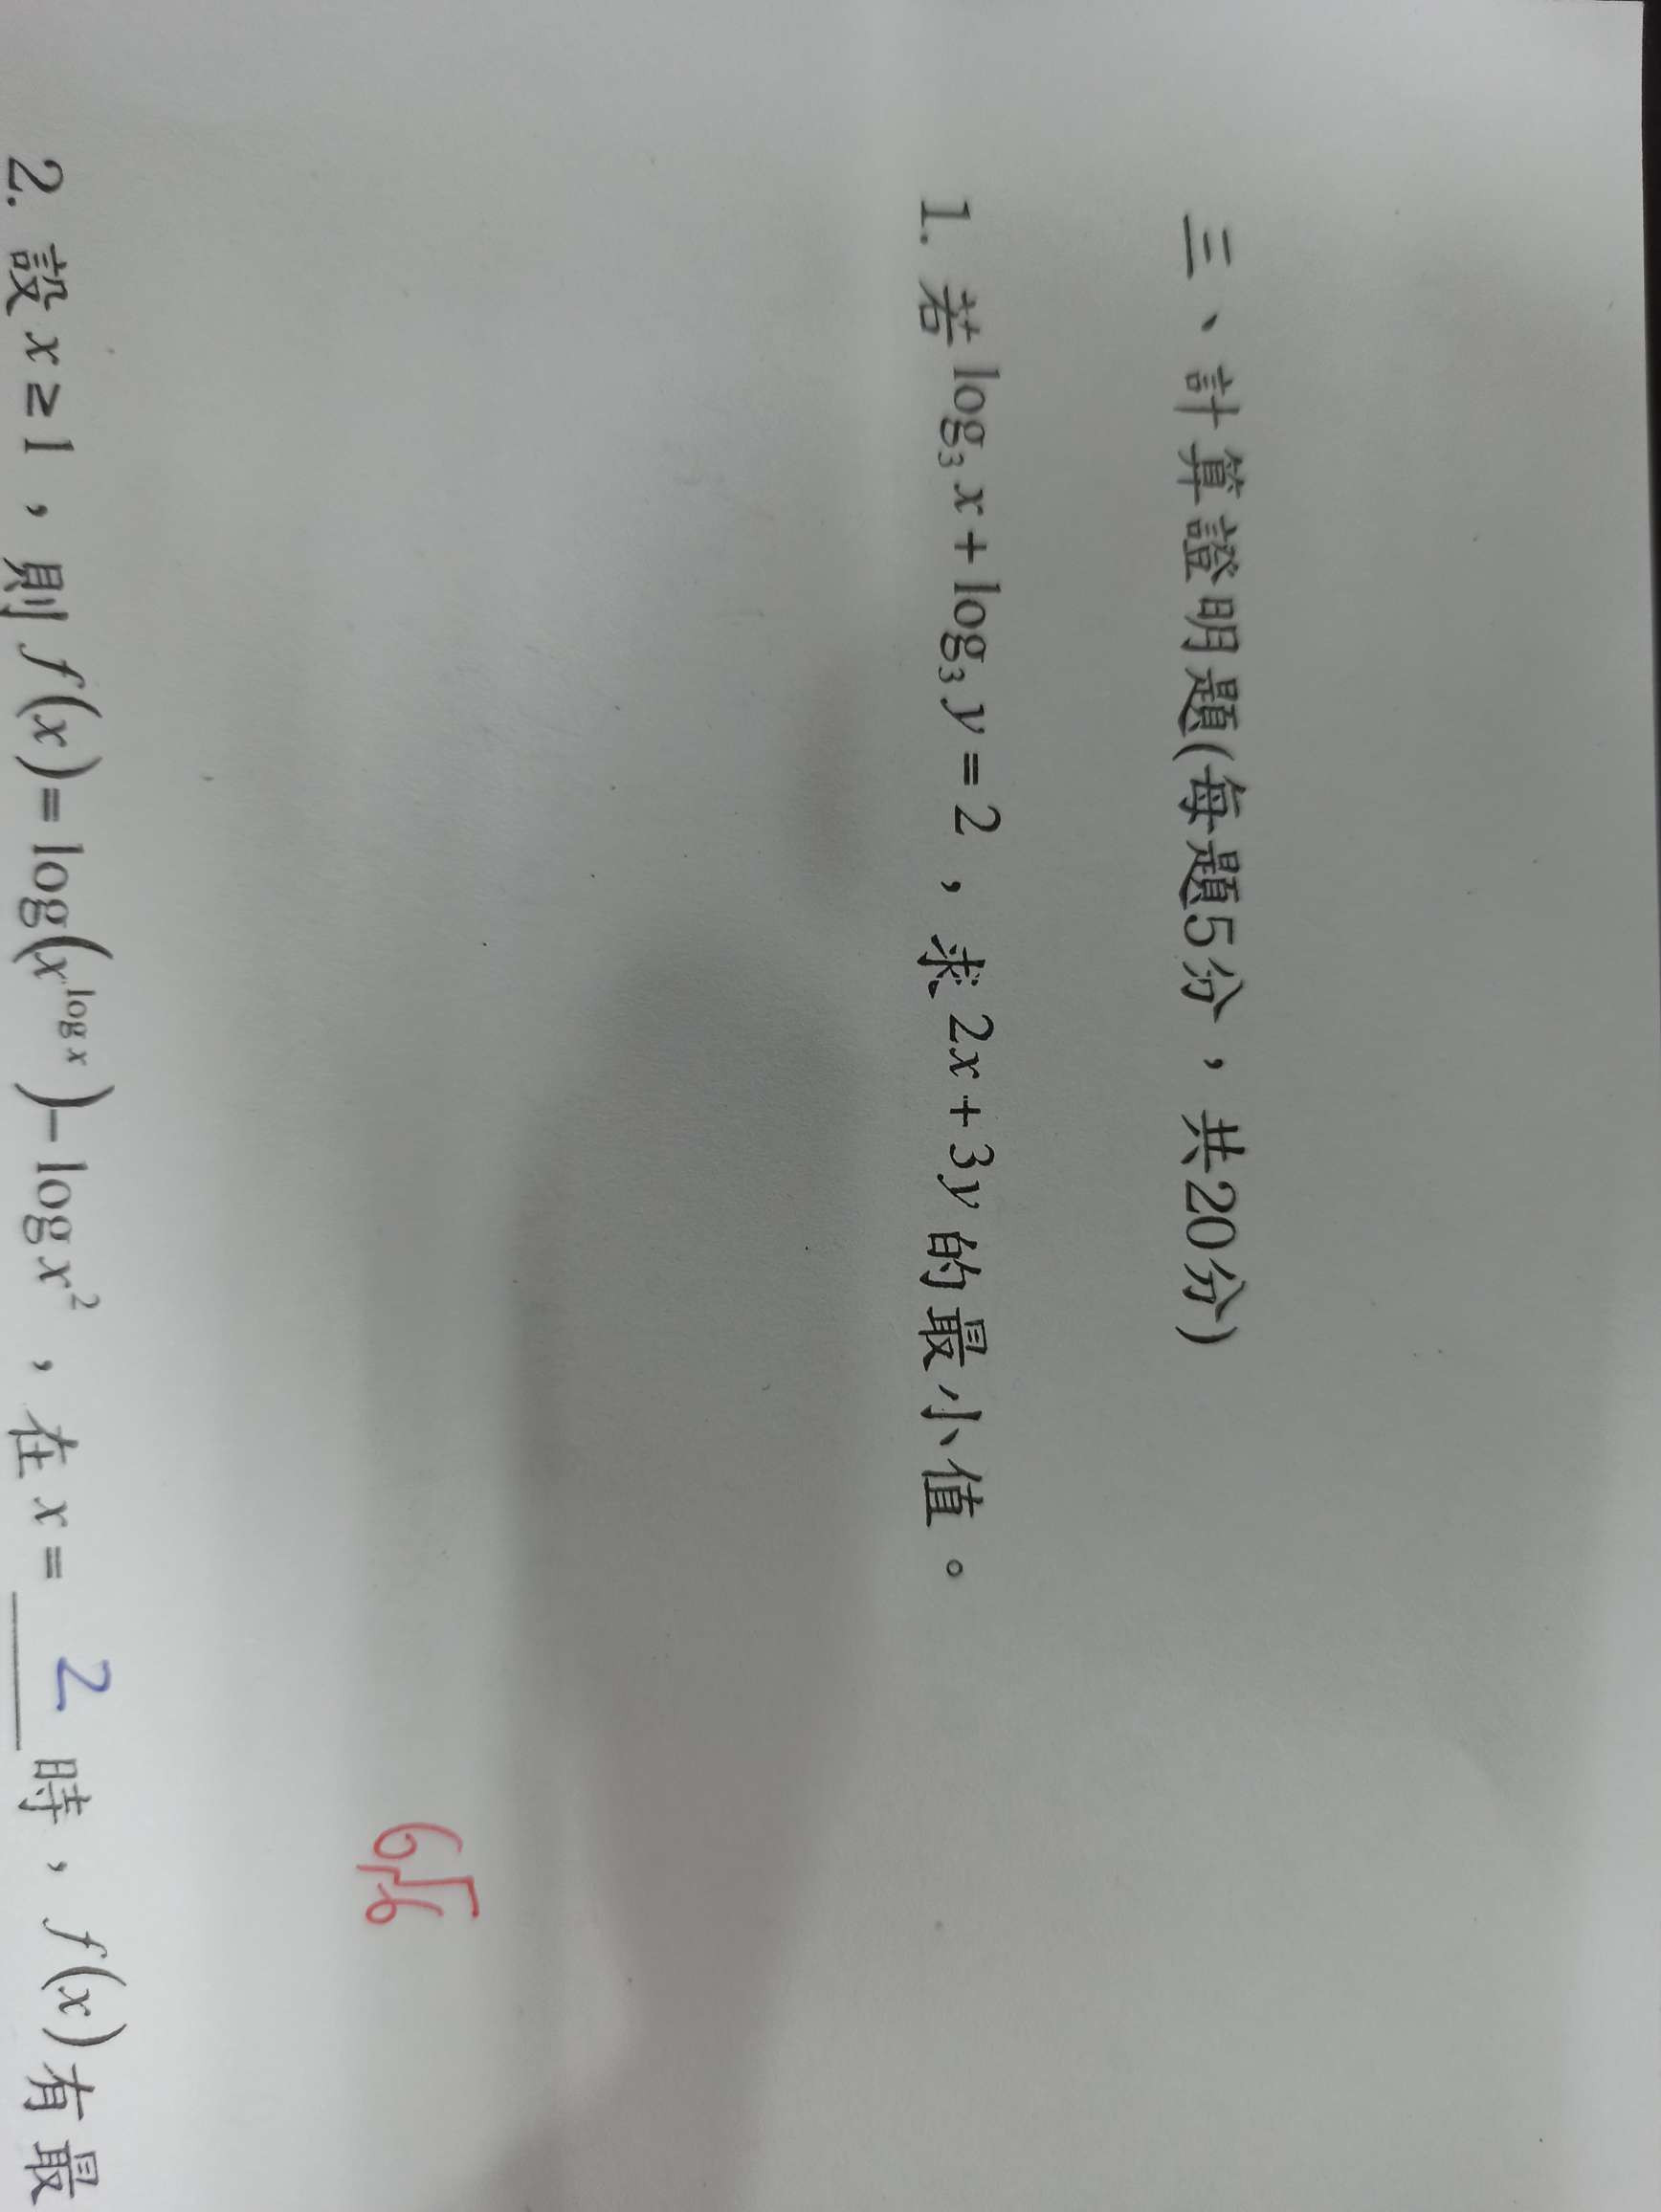 三、計算證明題(每題5分，共20分)
1. 若 log₃ x + log₃ y = 2，求 2x + 3y 的最小值。
6√6
2. 設 x ≥ 1，則 f(x) = log(x^(log x)) − log x²，在 x = 2 時，f(x) 有最